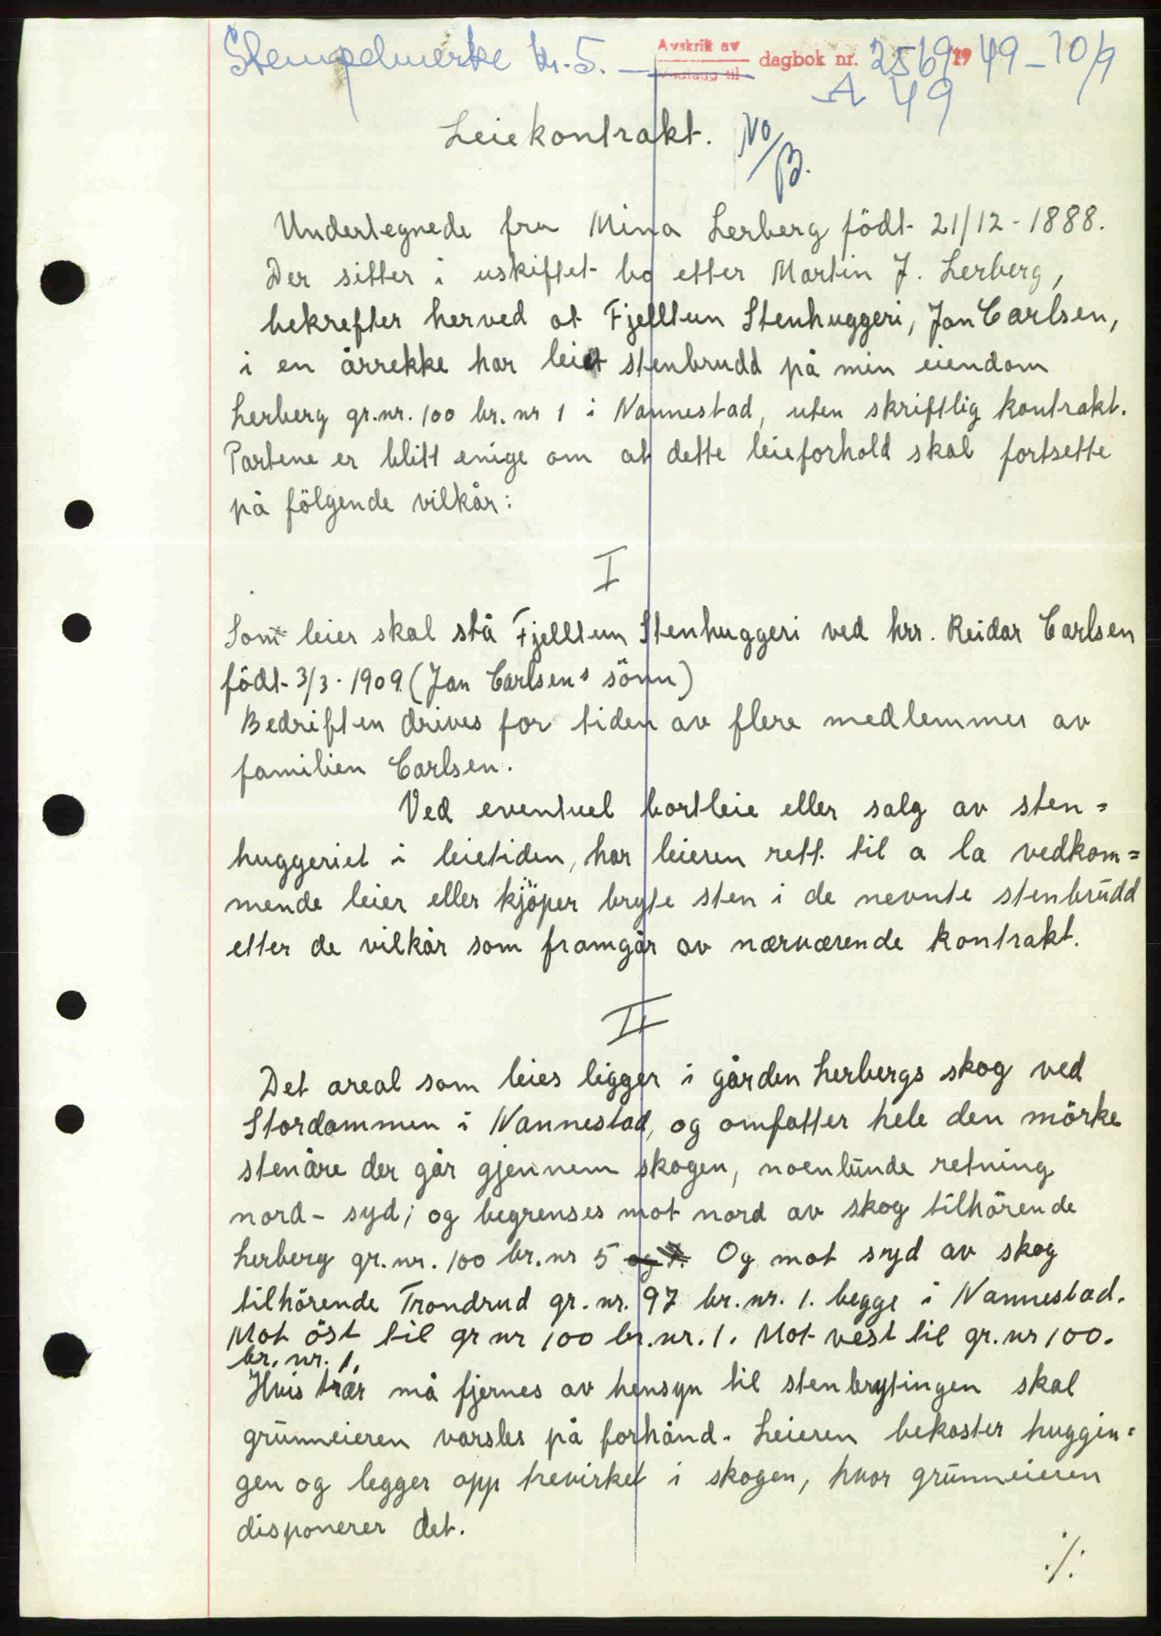 Stempelmerke kr. 5. —
Avskrift av
Vedlegg til
dagbok nr. 2569 1949 - 10/9
A 49
Leiekontrakt.
No/B.
Undertegnede fru Mina Lerberg födt 21/12 - 1888.
Der sitter i uskiftet bo etter Martin J. Lerberg,
bekrefter herved at Fjelltun Stenhuggeri, Jan Carlsen,
i en årrekke har leiet stenbrudd på min eiendom
Lerberg gr.nr. 100 br. nr 1 i Nannestad, uten skriftlig kontrakt.
Partene er blitt enige om at dette leieforhold skal fortsette
på fölgende vilkår:
I
Som leier skal stå Fjelltun Stenhuggeri ved hrr. Reidar Carlsen
födt 3/3 - 1909 (Jan Carlsens sönn)
Bedriften drives for tiden av flere medlemmer av
familien Carlsen.
Ved eventuel bortleie eller salg av sten=
huggeriet i leietiden, har leieren rett til a la vedkom=
mende leier eller kjöper bryte sten i de nevnte stenbrudd
etter de vilkår som framgår av nærværende kontrakt.
II
Det areal som leies ligger i gården Lerbergs skog ved
Stordammen i Nannestad, og omfatter hele den mörke
stenåre der går gjennem skogen, noenlunde retning
nord - syd; og begrenses mot nord av skog tilhörende
Lerberg gr. nr. 100 br. nr 5 og 7. Og mot syd av skog
tilhörende Trondrud gr. nr. 97 br. nr. 1. begge i Nannestad.
Mot öst til gr nr 100 br. nr. 1. Mot vest til gr. nr 100.
br. nr. 1.
Hvis trær må fjernes av hensyn til stenbrytingen skal
grunneieren varsles på forhånd. Leieren bekoster huggin=
gen og legger opp trevirket i skogen, hvor grunneieren
disponerer det.
./.